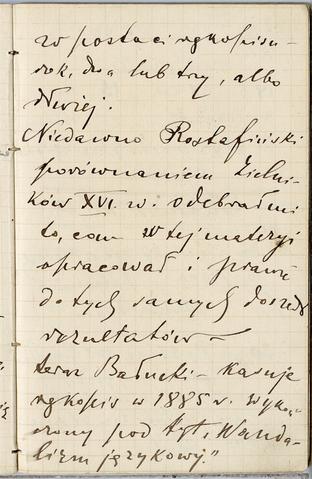 w postaci rękopisu –
rok, dwa lub trzy, albo
dłużej.
Niedawno Rostafiński
porównaniem Zielni-
ków XVI. w. odebrał mi
to, com w tej materyi
opracował i prawie
do tych samych doszedł
rezultatów –
teraz Bałucki – kasuje
rękopis w 1885 r. wykoń-
czony pod tyt. „Wanda-
lizm językowy."